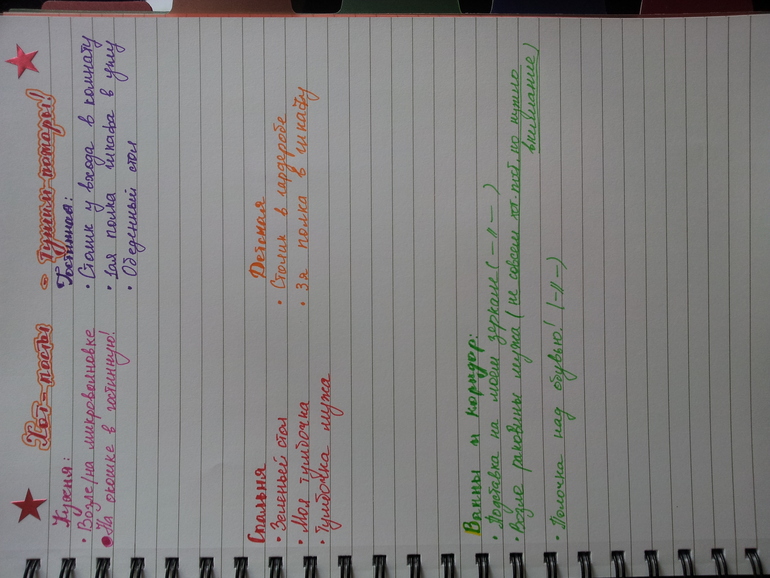 Хот-посты - Тушим пожары!
Кухня:
• Возле/на микроволновке
• На окошке в гостинную!
Гостинная:
• Столик у входа в комнату
• 1ая полка шкафа в углу
• Обеденный стол
Спальня
• Зеленый стол
• Моя тумбочка
• Тумбочка мужа
Детская
• Столик в гардеробе
• 3я полка в шкафу
Ванны и коридор:
• Подставка на моем зеркале (-//-)
• Возле раковины мужа (не совсем хот-пост, но нужно
внимание)
• Полочка над обувью! (-//-)